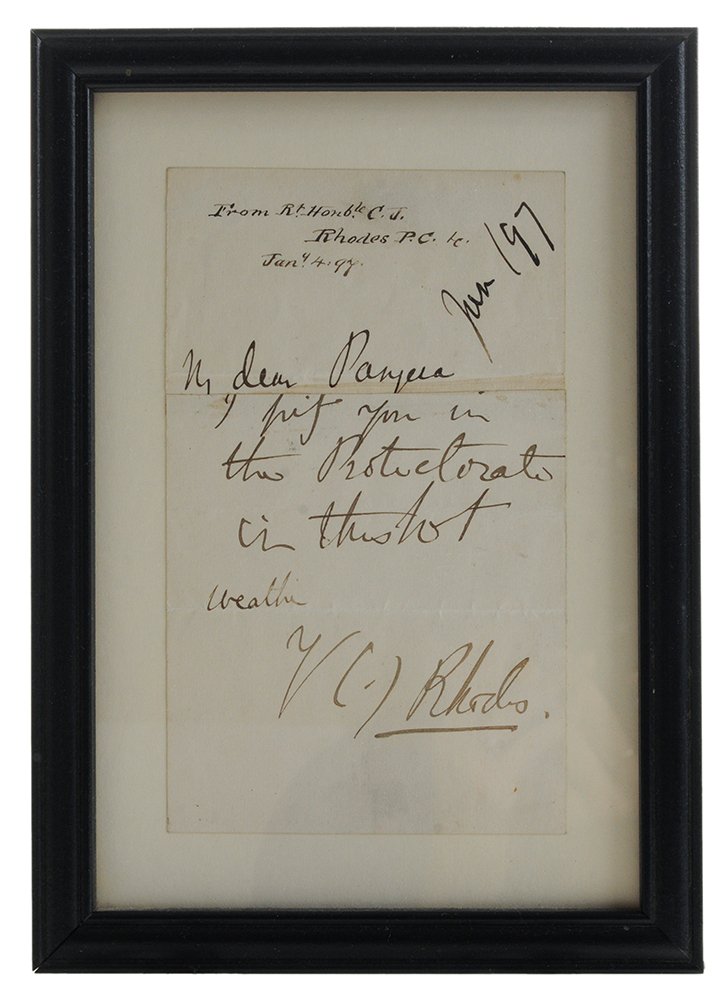 From Rt. Honble. C. J.
Rhodes P.C. &c.
Jany. 4. 97.
Jan / 97
My dear Panzera
I pity you in
the Protectorate
in this hot
weather
Y C J Rhodes.